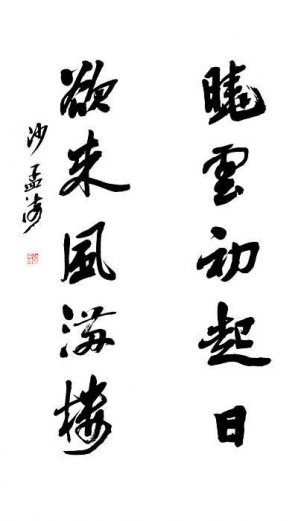 曉雲初起日
欲来風滿樓
沙孟海